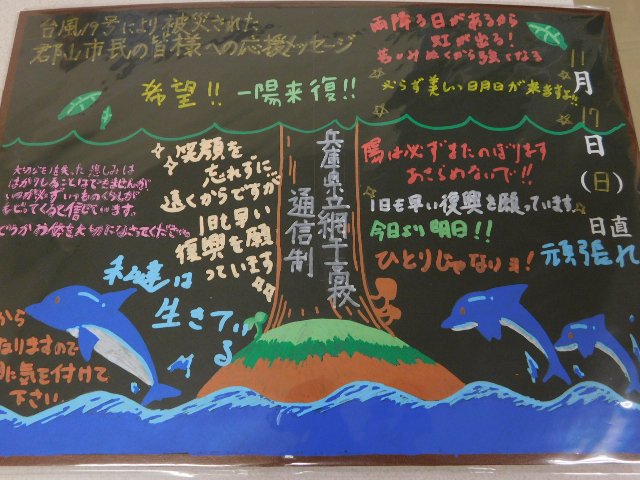 台風19号により被災された
郡山市民の皆様への応援メッセージ
雨降る日があるから
虹が出る!
苦しみぬくから強くなる
必らず美しい日月日が来ますよ!!
希望!! 一陽来復!!
11
月
17
日
(日)
日直
大切なものを失った悲しみは
はかりしることはできませんが
いつか必ずいつものくらしが
もどってくると信じています。
どうかお体を大切になさってください。
笑顔を
忘れずに
遠くからですが
1日も早い
復興を願
っています
兵庫県立網干高校
通信制
陽は必ずまたのぼります
あきらめないで!!
1日も早い復興を願っています。
今日より明日!!
ひとりじゃないョ!
頑張れ
私達は
生きてい
る
から
なりますので
気を付けて
下さい